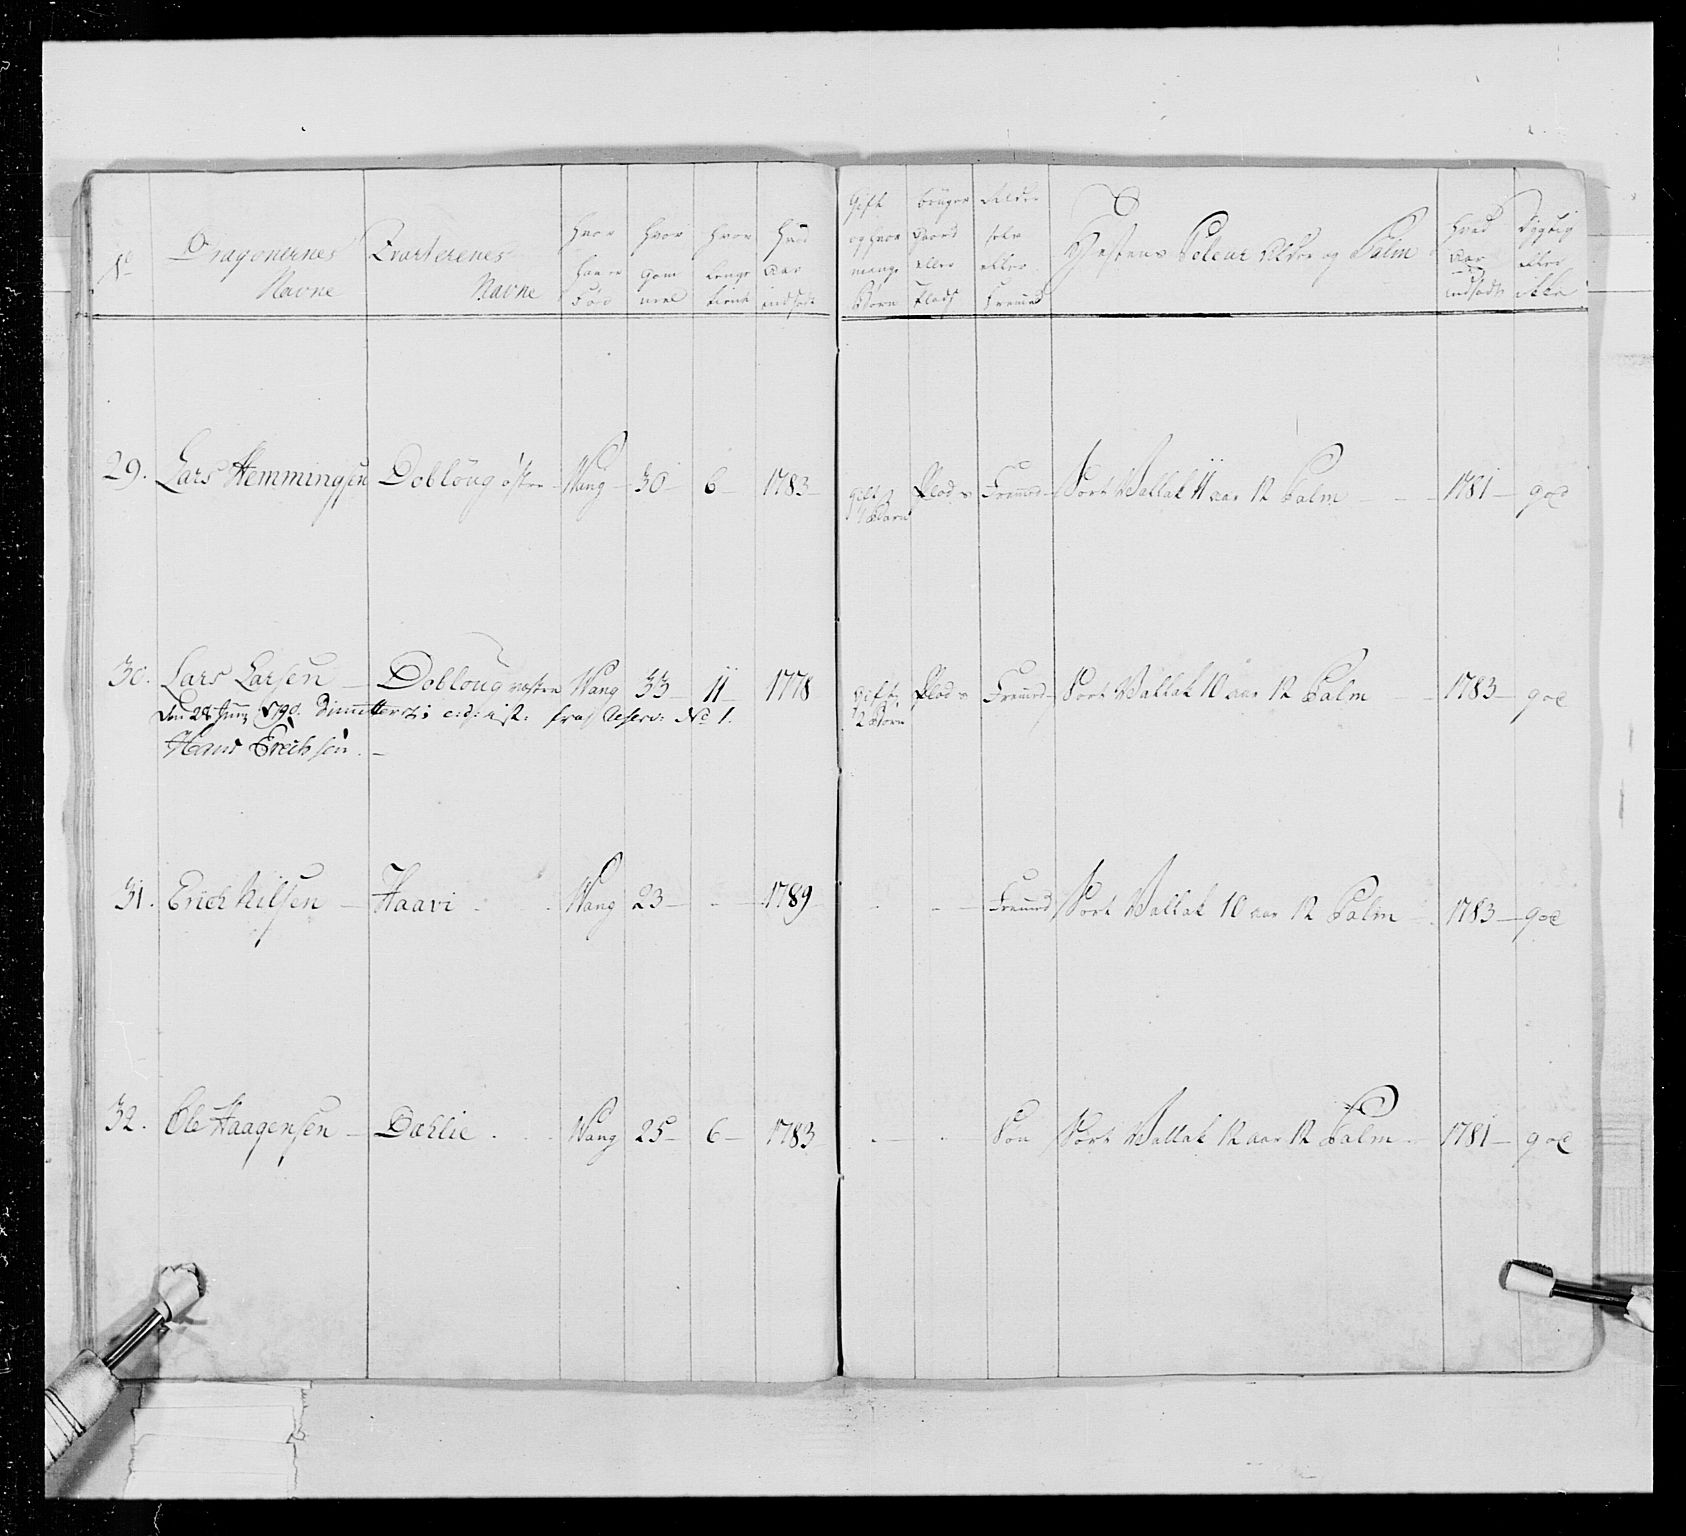 No
Dragonernes Navne
Qvarterenes Navne
hvor han er Fød
hvor Gammel
hvor lenge tient
hvad Aar indsadt
Gift og hvor mange Børn
bruger Gaard eller Plads
Ælder selv eller Fremmed
Hæstens Coleur Alder og Palm
hvad Aar indsadt
Dygtig eller ikke
29. Lars Hemmingsen Dobloug østre Wang 30 6 1783 gift 1 Barn Plads Fremmed Sort Wallak 11 aar 12 Palm 1781 god
30. Lars Larsen Dobloug vestre Wang 33 11 1778 gift 2 Børn Plads Fremmed Sort Wallak 10 aar 12 Palm 1783 god
Den 28 1790. Dimitteret; fra Reserv: No 1.
Hans Erichsen
31. Erich Nilsen Haavi Wang 23 1789 Fremmed Sort Wallak 10 aar 12 Palm 1783 god
32. Ole Haagensen Dæhlie Wang 25 6 1783 Søn Sort Wallak 12 aar 12 Palm 1781 god